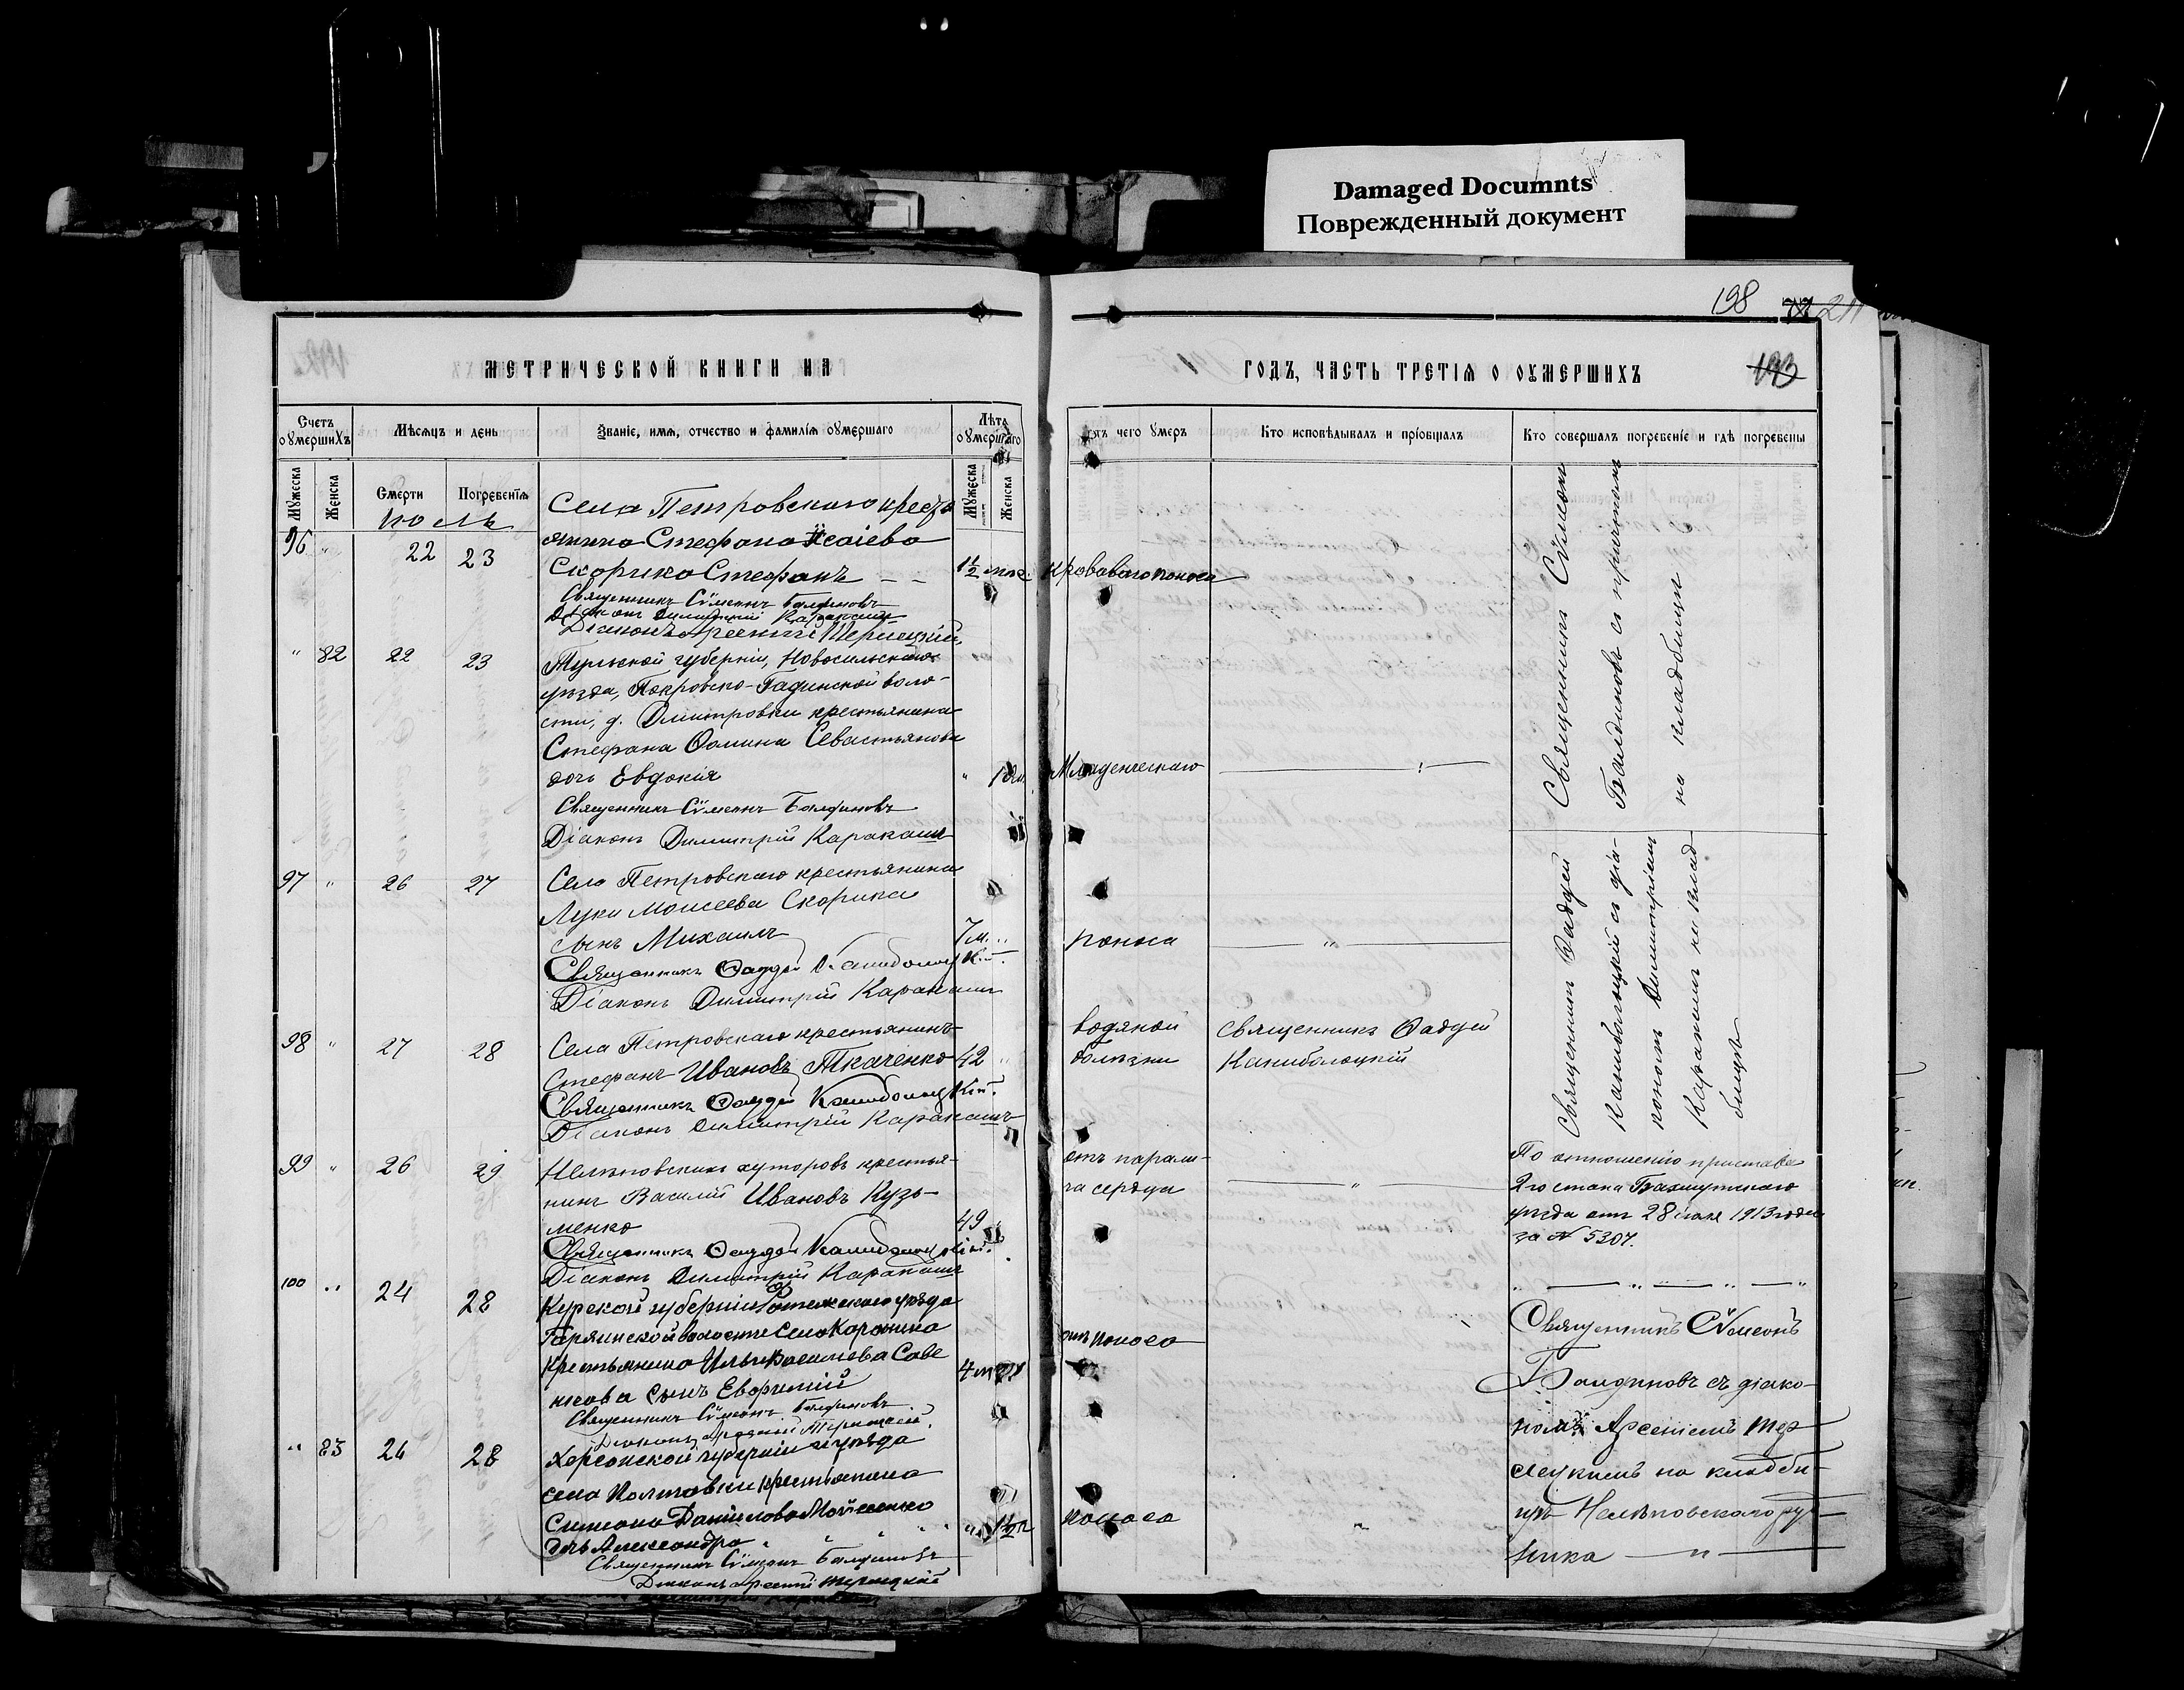 Damaged Documnts
Поврежденный документ
198
193
МЕТРИЧЕСКОЙ КНИГИ НА
Счетъ оумершихъ
Мѣсяцъ и день
Званіе, имя, отчество и фамилія оумершаго
Лѣта оумершаго
Мужеска
Женска
Смерти
Погребенія
Мужеска
Женска
Іюль
96 " 22 23
Села Петровскаго кресть
янина Стефана Исаіева
Скорика Стефанъ – – 1½
Священникъ Сѵмеонъ Балдиновъ
Діаконъ Димитрій Каракашъ
Діаконъ Арсеній
" 82 22 23
Тульской губерніи, Новосильскаго
уѣзда, Покровско-Гадинской воло-
сти, д. Димитровки крестьянина
Стефана Ѳомина Севастьянова
дочь Евдокія "
Священникъ Сѵмеонъ Балдиновъ
Діаконъ Димитрій Каракашъ
97 " 26 27
Села Петровскаго крестьянина
Луки Моисеева Скорика
сынъ Михаилъ 7 м. "
Священникъ Ѳаддей
Діаконъ Димитрій Каракашъ
98 " 27 28
Села Петровскаго крестьянинъ
Стефанъ Ивановъ Ткаченко 42 "
Священникъ Ѳаддей
Діаконъ Димитрій Каракашъ
99 " 26 29
Нелѣповскихъ хуторовъ крестья-
нинъ Василій Ивановъ Кузь-
менко 49
Священникъ Ѳаддей
Діаконъ Димитрій Каракашъ
100 " 24 28
Курской губерніи Фатежскаго уѣзда
волости села
крестьянина Ильи Васильева Саве
нкова сынъ Евфимій 4
Священникъ Сѵмеонъ Балдиновъ
Діаконъ Арсеній
" 83 24 28
Херсонской губерніи и уѣзда
села Полтавки крестьянина
Симеона Даніилова Мойсеенко
дочь Александра " 1½
Священникъ Сѵмеонъ Балдиновъ
Діаконъ Арсеній
ГОДЪ, ЧАСТЬ ТРЕТІЯ О ОУМЕРШИХЪ
Отъ чего умеръ
Кто исповѣдывалъ и пріобщалъ
Кто совершалъ погребеніе и гдѣ погребены
Кроваваго поноса
Младенческаго
поноса "
водяной
болѣзни
Священникъ Ѳаддей
отъ парали-
ча сердца "
отъ поноса
поноса "
Священникъ Сѵмеонъ
Балдиновъ съ причтомъ
на кладбищѣ
Священникъ Ѳаддей
съ діа-
кономъ Димитріемъ
Каракашемъ на клад
бищѣ
По отношенію пристава
2го стана Бахмутскаго
уѣзда отъ 28 іюля 1913 года
за № 5307.
Священникъ Сѵмеонъ
Балдиновъ съ діако-
номъ Арсеніемъ Тер
на кладби-
щѣ Нелѣповскаго руд
ника — " —